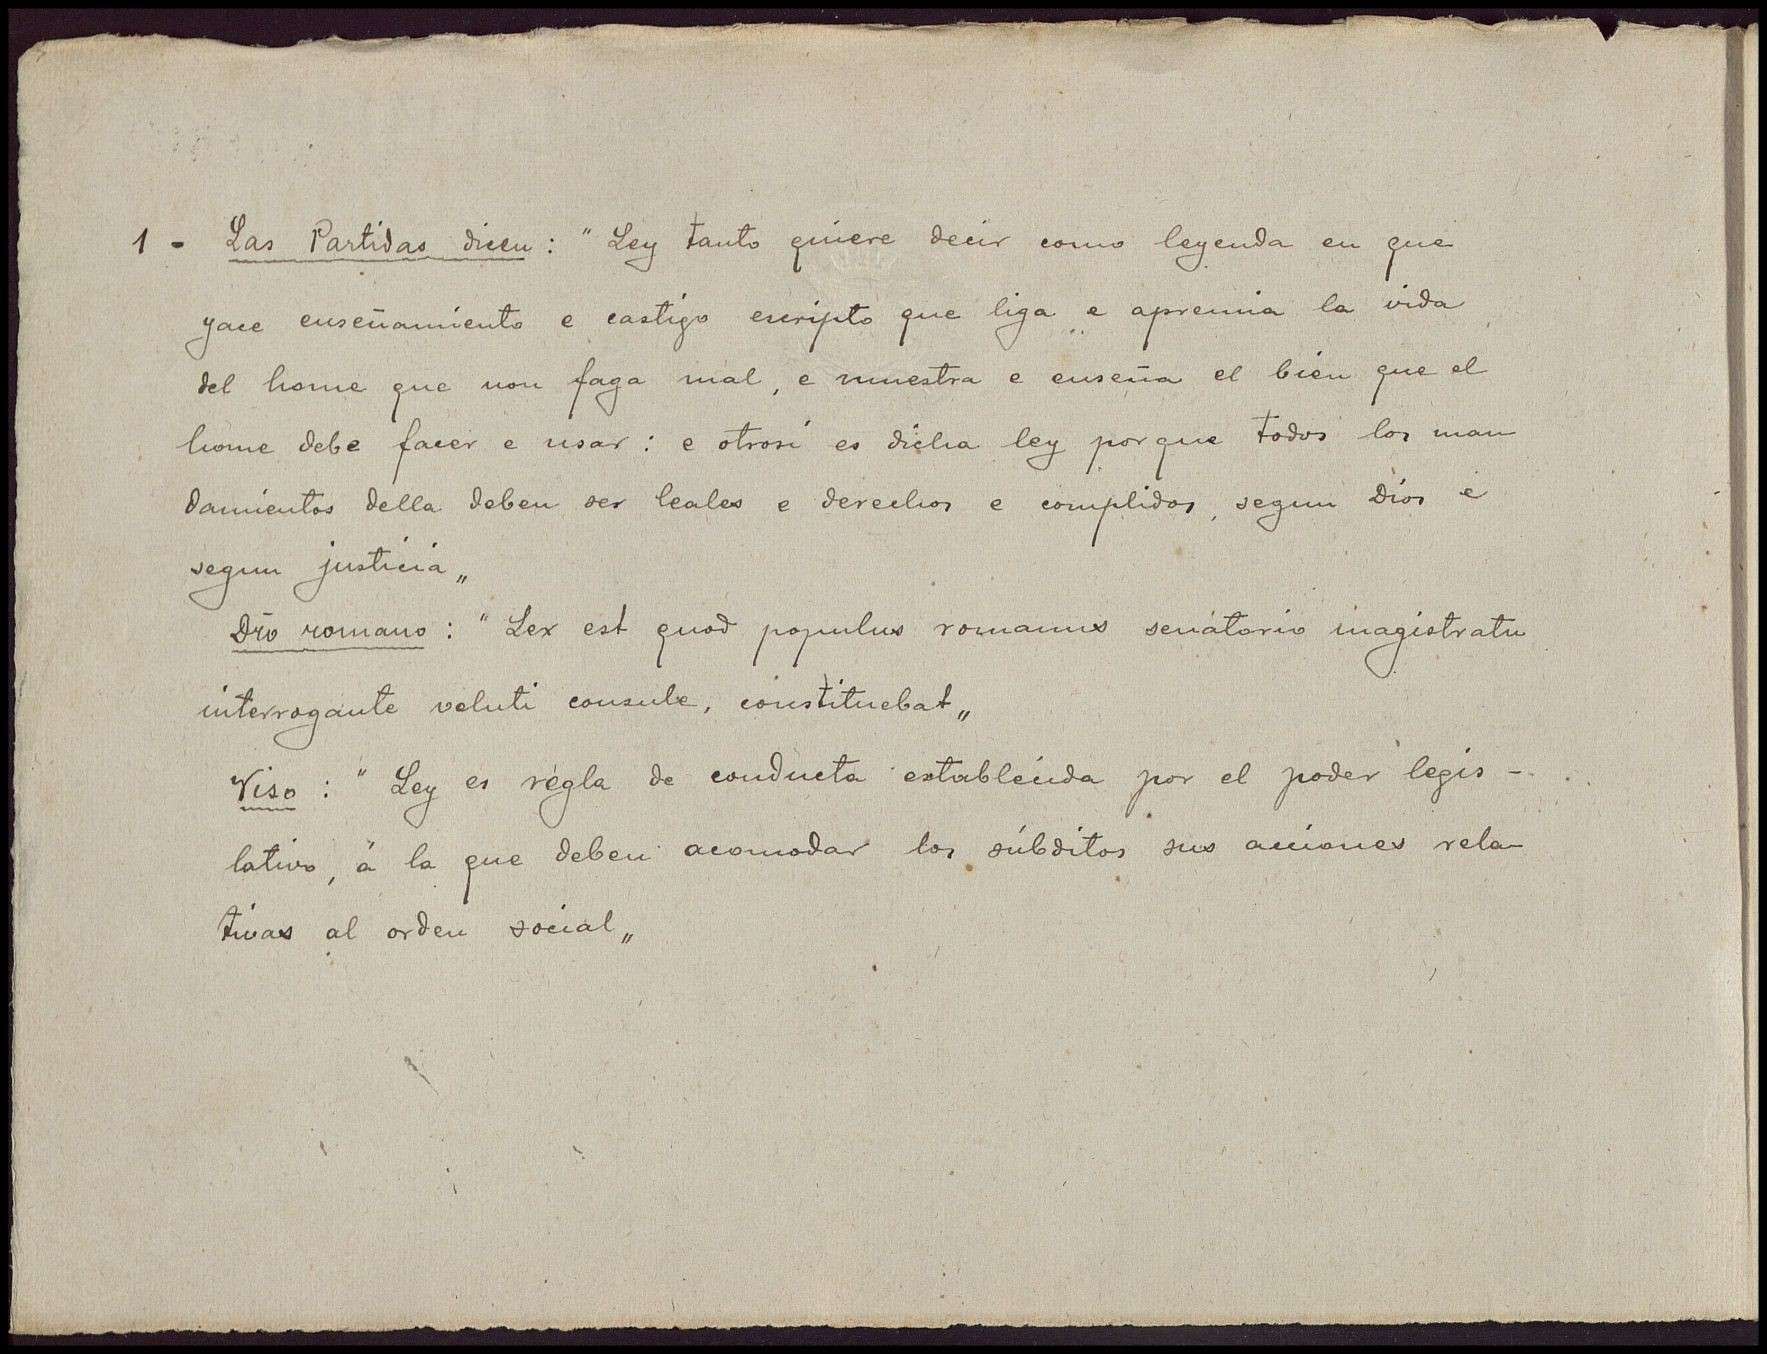 1 - Las Partidas dicen: "Ley tanto quiere decir como leyenda en que
yace enseñamiento e castigo escripto que liga e apremia la vida
del home que non faga mal, e muestra e enseña el bien que el
home debe facer e usar: e otrosí es dicha ley porque todos los man
damientos della deben ser leales e derechos e complidos, segun Dios e
segun justicia„
Dr̃o romano: "Lex est quod populus romanus senatorio magistratu
interrogante veluti consule, constituebat„
Viso: "Ley es regla de conducta establecida por el poder legis -
lativo, á la que deben acomodar los súbditos sus acciones rela-
tivas al orden social„